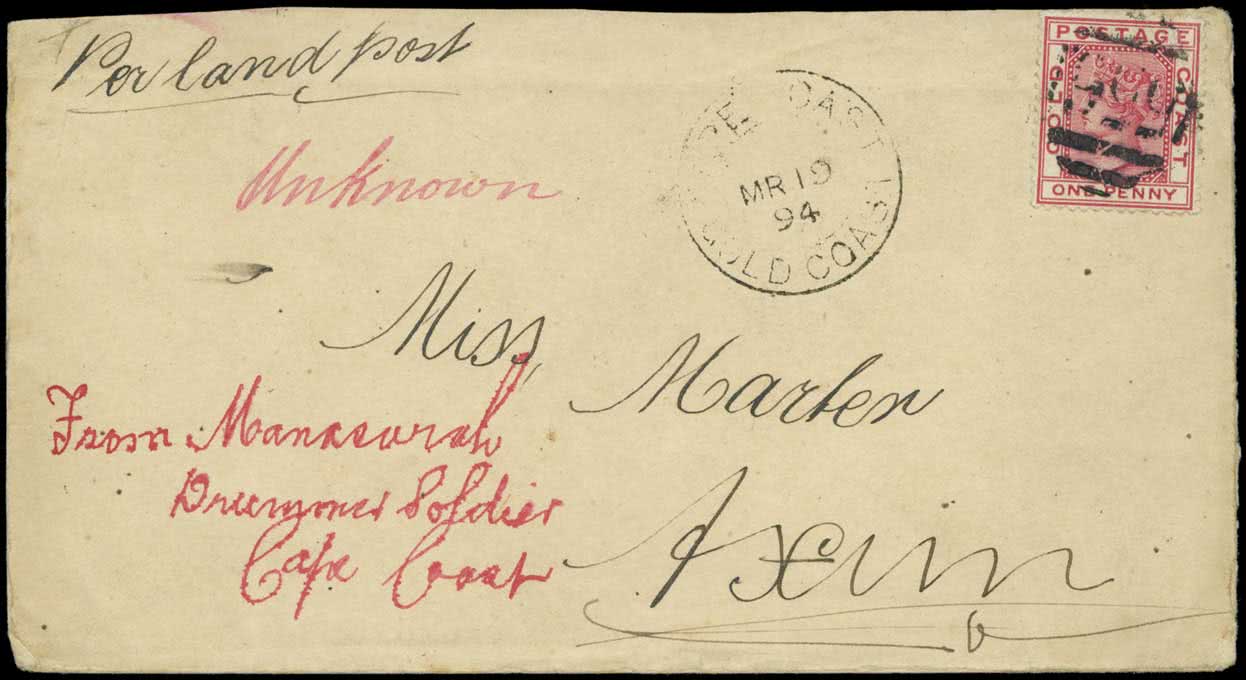 Per land post
Unknown
CAPE COAST
MR 19
94
GOLD COAST
POSTAGE
GOLD COAST
ONE PENNY
Miss
Marter
From
Drummer Soldier
Cape Coast
Axim